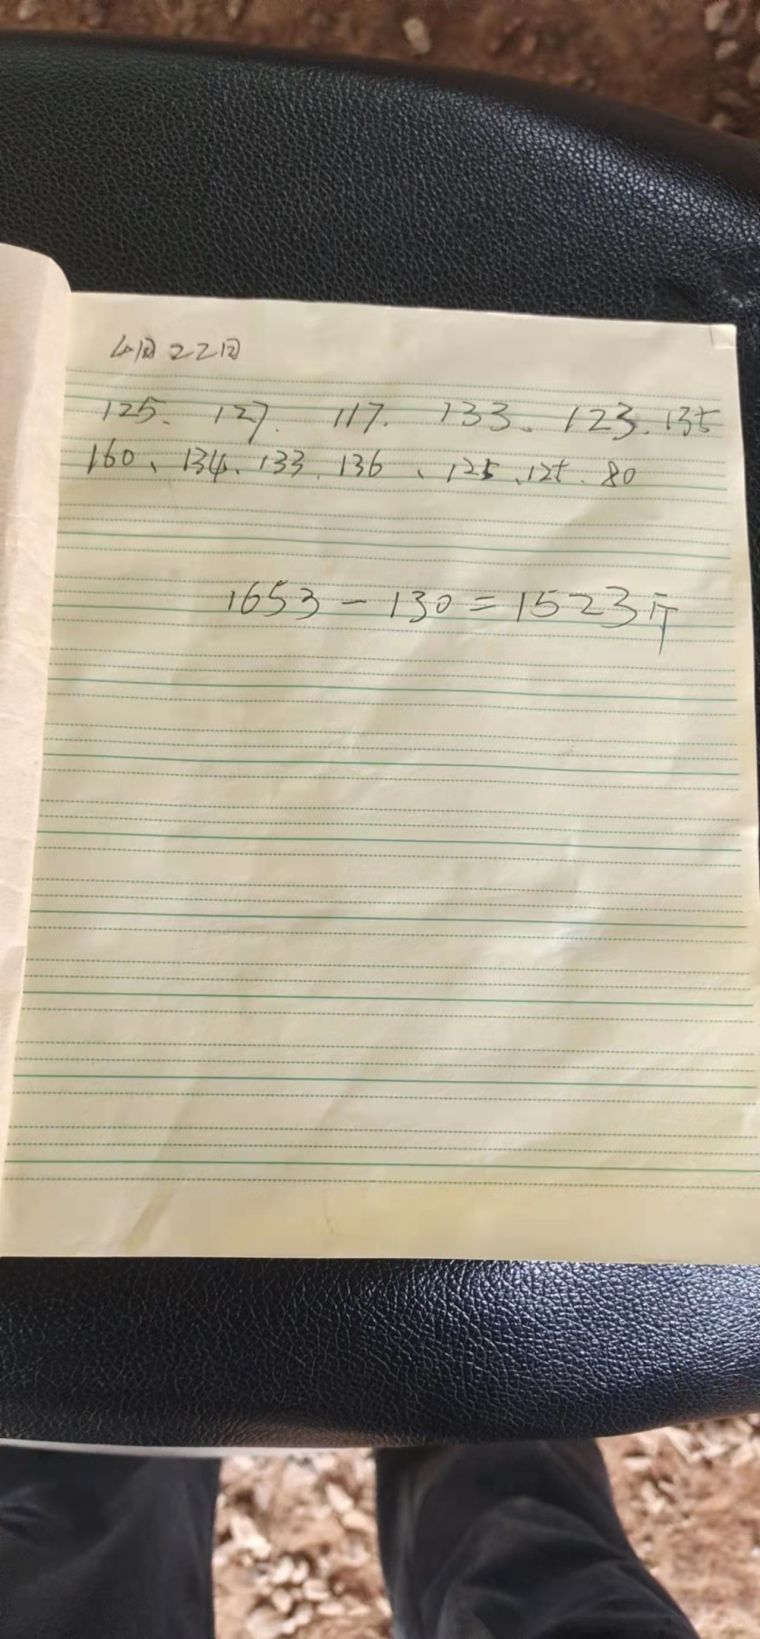 4月22日
125、127、117、133、123、135
160、134、133、136、125、125、80
1653-130=1523斤